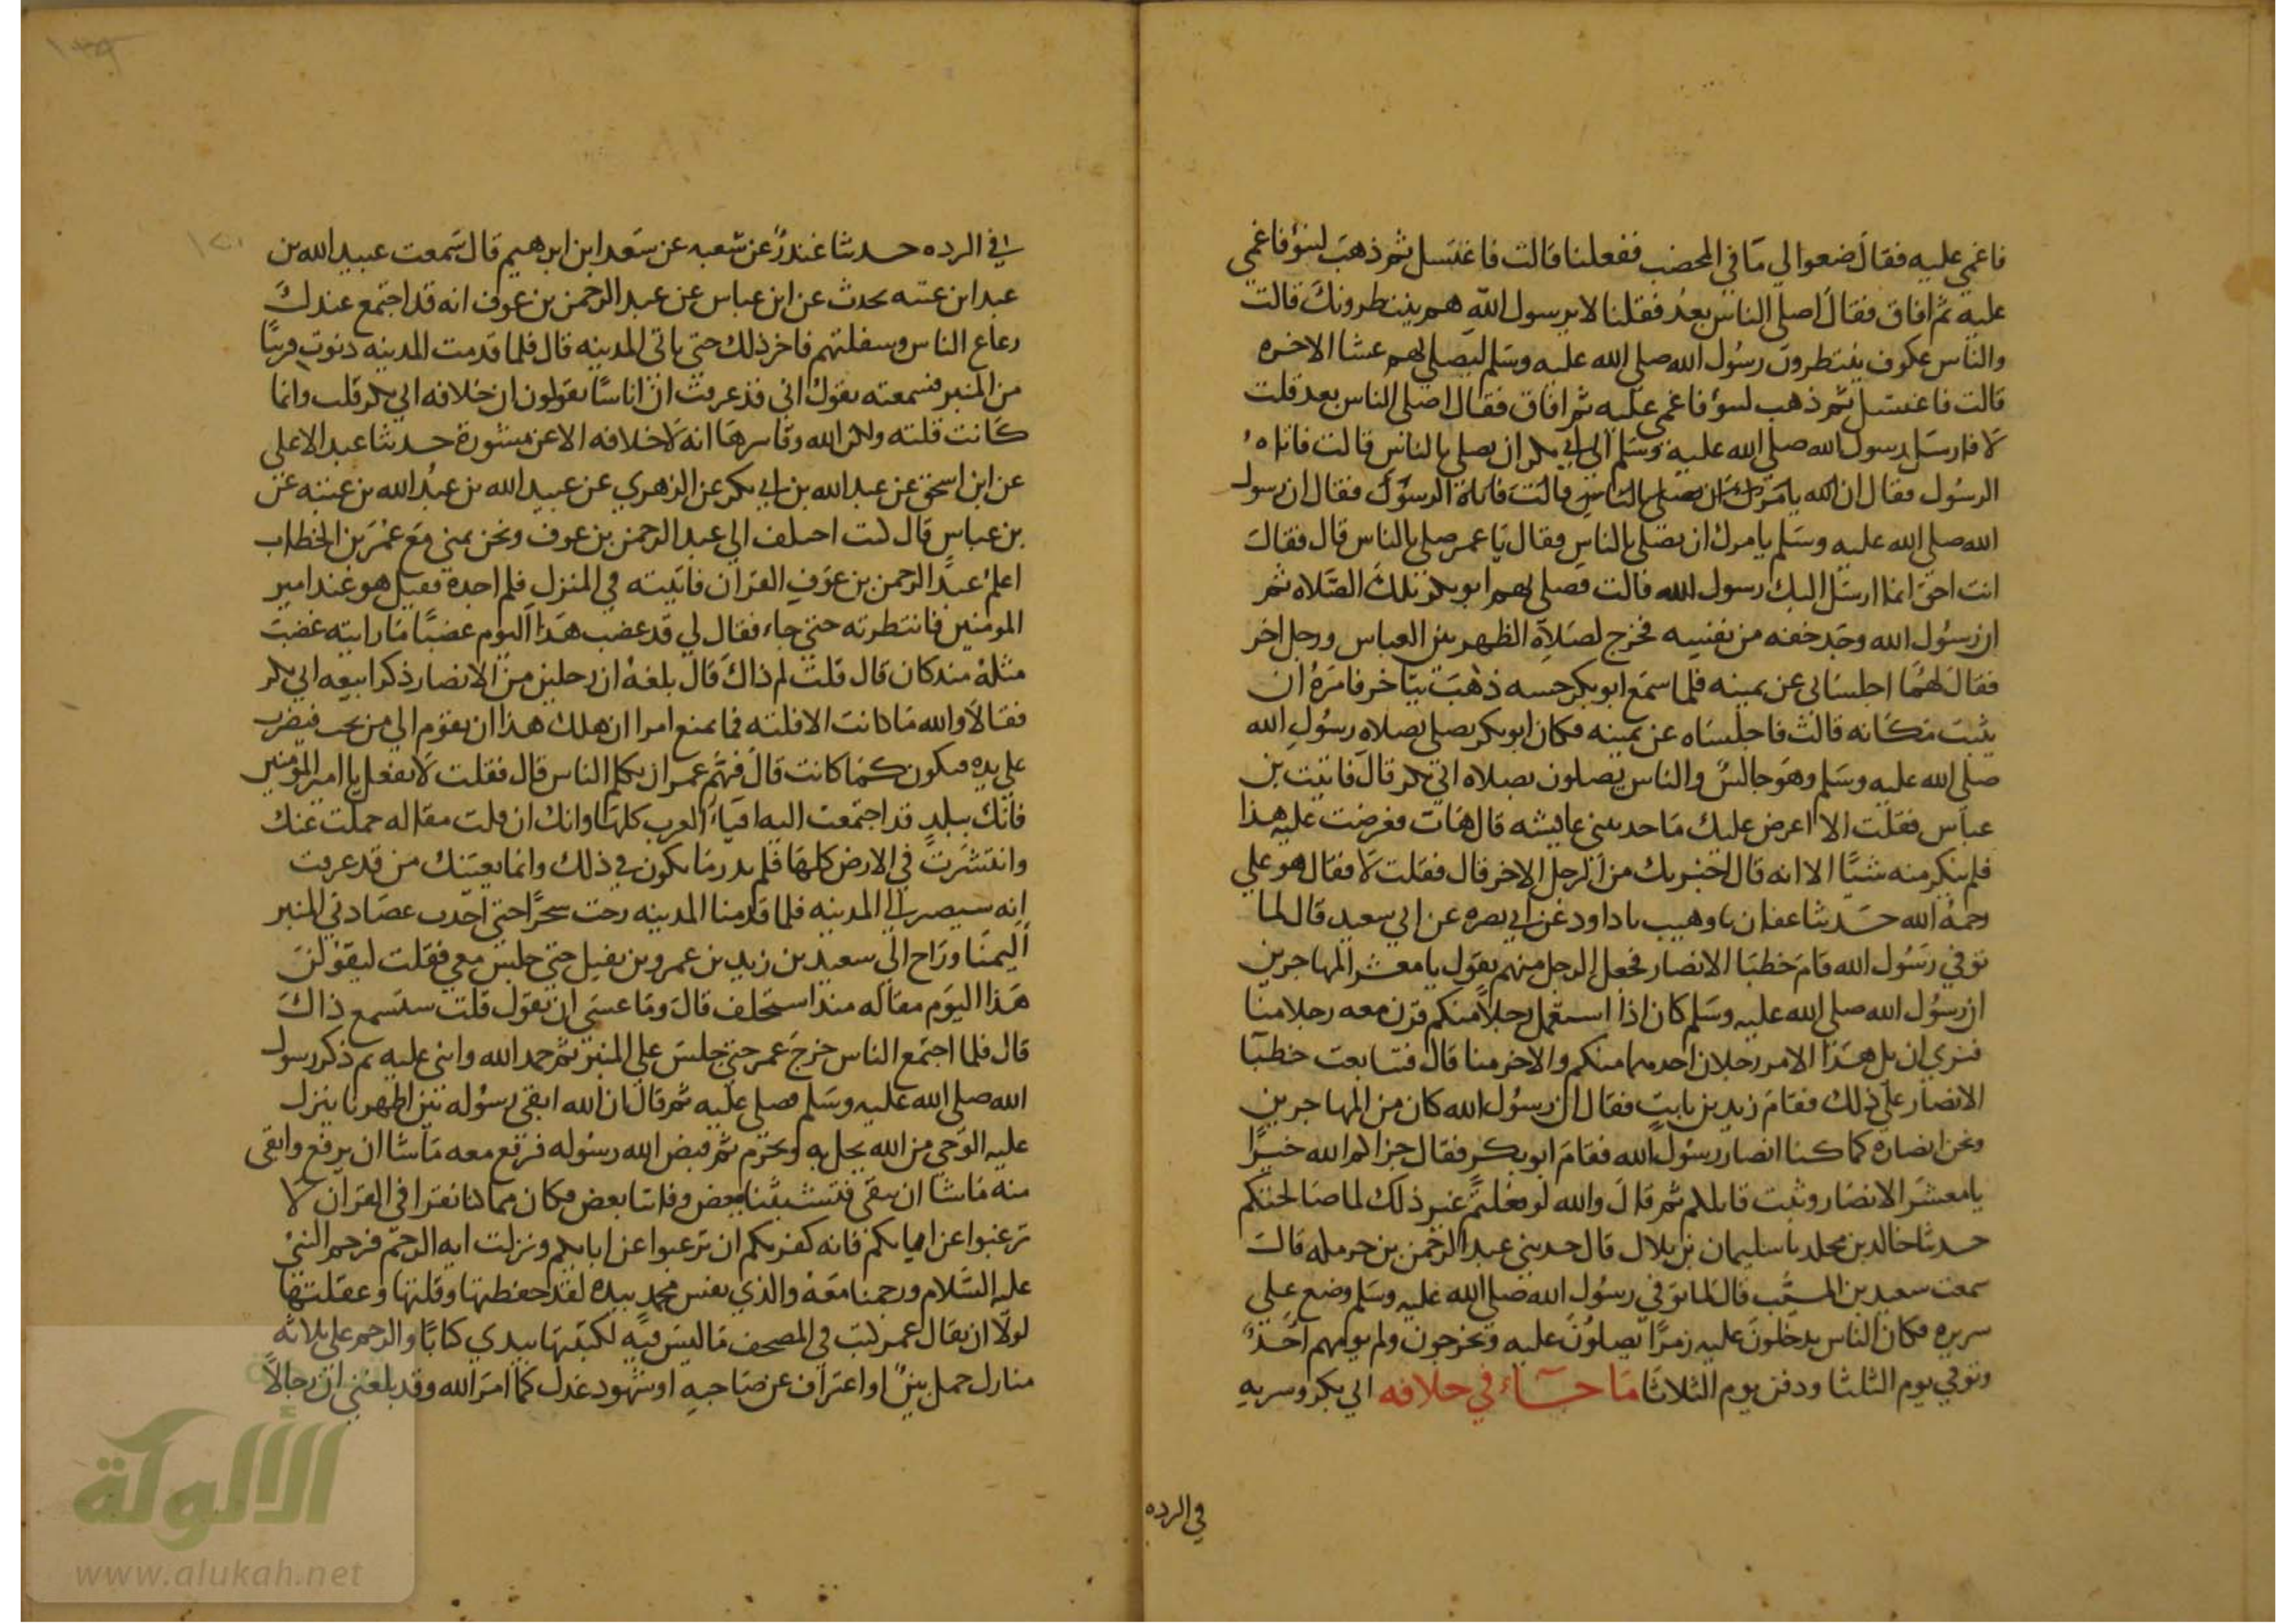 فاغمي عليه فقال ضعوا لي ما في المخضب ففعلنا قالت فاغتسل ثم ذهب لينؤ فاغمي
عليه ثم افاق فقال اصلي الناس بعد فقلنا لا يرسول الله هم ينتظرونك قالت
والناس عكوف ينتظرون رسول الله صلي الله عليه وسلم ليصلي بهم عشا الاخره
قالت فاغتسل ثم ذهب لينؤ فاغمي عليه ثم افاق فقال اصلي الناس بعد قلت
لا فارسل رسول الله صلي الله عليه وسلم الي ابي بكر ان يصلي بالناس قالت فاتاه
الرسول فقال ان الله يامرك ان تصلي بالناس قالت فاتاه الرسول فقال ان رسول
الله صلي الله عليه وسلم يامرك ان تصلي بالناس فقال يا عمر صلي بالناس قال فقال
انت احق انما ارسل اليك رسول الله قالت فصلي بهم ابو بكر تلك الصلاه ثم
ان رسول الله وجد خفه من نفسه فخرج لصلاة الظهر بين العباس ورجل اخر
فقال لهما اجلساني عن يمينه فلما سمع ابو بكر حسه ذهب يتاخر فامره ان
يثبت مكانه قالت فاجلساه عن يمينه فكان ابو بكر يصلي بصلاه رسول الله
صلي الله عليه وسلم وهو جالس والناس يصلون بصلاه ابي بكر قال فاتيت بن
عباس فقلت الا اعرض عليك ما حدثتني عايشه قال هات فعرضت عليه هذا
فلم ينكر منه شيئا الا انه قال اخبرتك من الرجل الاخر قال فقلت لا فقال هو علي
رحمه الله حدثنا عفان نا وهيب نا داود عن ابي نصره عن ابي سعيد قال لما
توفي رسول الله قام خطبا الانصار فجعل الرجل منهم يقول يا معشر المهاجرين
ان رسول الله صلي الله عليه وسلم كان اذا استعمل رجلا منكم قرن معه رجلا منا
فنري ان يلي هذا الامر رجلان احدهما منكم والاخر منا قال فتتابعت خطبا
الانصار علي ذلك فقام زيد بن ثابت فقال ان رسول الله كان من المهاجرين
ونحن انصاره كما كنا انصار رسول الله فقام ابو بكر فقال جزاكم الله خيرا
يا معشر الانصار وثبت قايلكم ثم قال والله لو فعلتم غير ذلك لما صالحنكم
حدثنا خالد بن مخلد نا سليمان بن بلال قال حدثني عبد الرحمن بن حرمله قال
سمعت سعيد بن المسيب قال لما توفي رسول الله صلي الله عليه وسلم وضع علي
سريره فكان الناس يدخلون عليه زمرا يصلون عليه ويخرجون ولم يومهم احد
وتوفي يوم الثلثا ودفن يوم الثلاثا ما جاء في خلافه ابي بكر وسريه
في الرده
في الرده حدثنا غندر عن شعبه عن سعد ابن ابرهيم قال سمعت عبيد الله بن
عبد ابن عتبه يحدث عن ابن عباس عن عبد الرحمن بن عوف انه قد اجتمع عندك
رعاع الناس وسفلتهم فاخر ذلك حتي ياتي المدينه قال فلما قدمت المدينه دنوت قريبا
من المنبر فسمعته يقول اني قد عرفت ان اناسا يقولون ان خلافه ابي بكر فلت وانما
كانت فلته ولكن الله وقا سرها انه لا خلافه الا عن مشورة حدثنا عبد الاعلي
عن ابن اسحق عن عبد الله بن ابي بكر عن الزهري عن عبيد الله بن عبد الله بن عتبه عن
بن عباس قال كنت اختلف الي عبد الرحمن بن عوف ونحن بمني مع عمر بن الخطاب
اعلم عبد الرحمن بن عوف القران فاتيته في المنزل فلم اجدة فقيل هو عند امير
المومنين فانتظرته حتي جاء فقال لي قد غضب هذا اليوم غضبا ما رايته غضب
مثله منذ كان قال قلت لم ذاك قال بلغه ان رجلين من الانصار ذكرا بيعه ابي بكر
فقالا والله ما كانت الا فلته فما يمنع امرا ان هلك هذا ان يقوم الي من يحب فيضرب
علي يده فيكون كما كانت قال فهم عمر ان يكلم الناس قال فقلت لا تفعل يا امير المؤمنين
فانك ببلد قد اجتمعت اليه افياء العرب كلها وانك ان قلت مقاله حملت عنك
وانتشرت في الارض كلها فلم يدر ما يكون في ذلك وانما يعينك من قد عرفت
انه سيصير الي المدينه فلما قدمنا المدينه رحت سحرا حتي اخذت عضادتي المنبر
اليمنا وراح الي سعيد بن زيد بن عمرو بن نفيل حتي جلس معي فقلت ليقولن
هذا اليوم مقاله منذ استخلف قال وما عسي ان يقول قلت ستسمع ذاك
قال فلما اجتمع الناس خرج عمر حتي جلس علي المنبر ثم حمد الله واثني عليه ثم ذكر رسول
الله صلي الله عليه وسلم فصلي عليه ثم قال ان الله ابقي رسوله بين اظهرنا ينزل
عليه الوحي من الله يحل به ويحرم ثم قبض الله رسوله فرفع معه ما شا ان يرفع وابقي
منه ما شا ان يبقي فتشبثنا ببعض وفاتنا بعض فكان مما كنا نقرا في القران لا
ترغبوا عن ابايكم فانه كفر بكم ان ترغبوا عن ابايكم ونزلت ايه الرجم فرجم النبي
عليه السلام ورجمنا معه والذي نفس محمد بيده لقد حفظتها وقلتها وعقلتها
لولا ان يقال عمر كتب في المصحف ما ليس فيه لكتبتها بيدي كتابا والرجم علي ثلاثه
منازل حمل بين او اعتراف عن صاحبه او شهود عدل كما امر الله وقد بلغني ان رجالا
الألوكة
www.alukah.net